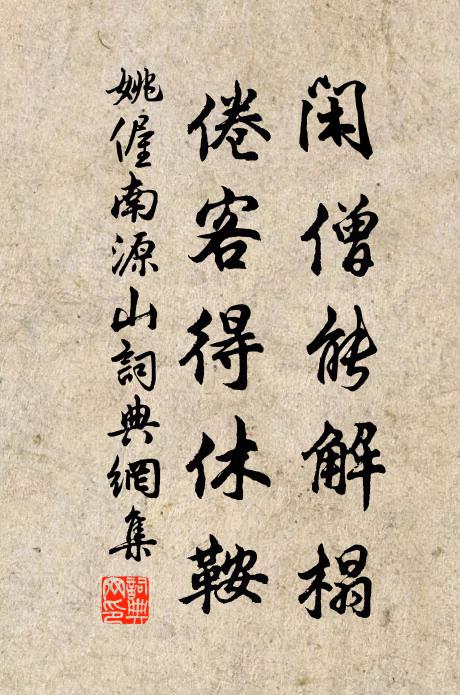 闲僧能解榻
倦客得休鞍
姚偓南源山詞典網集
詞典网印